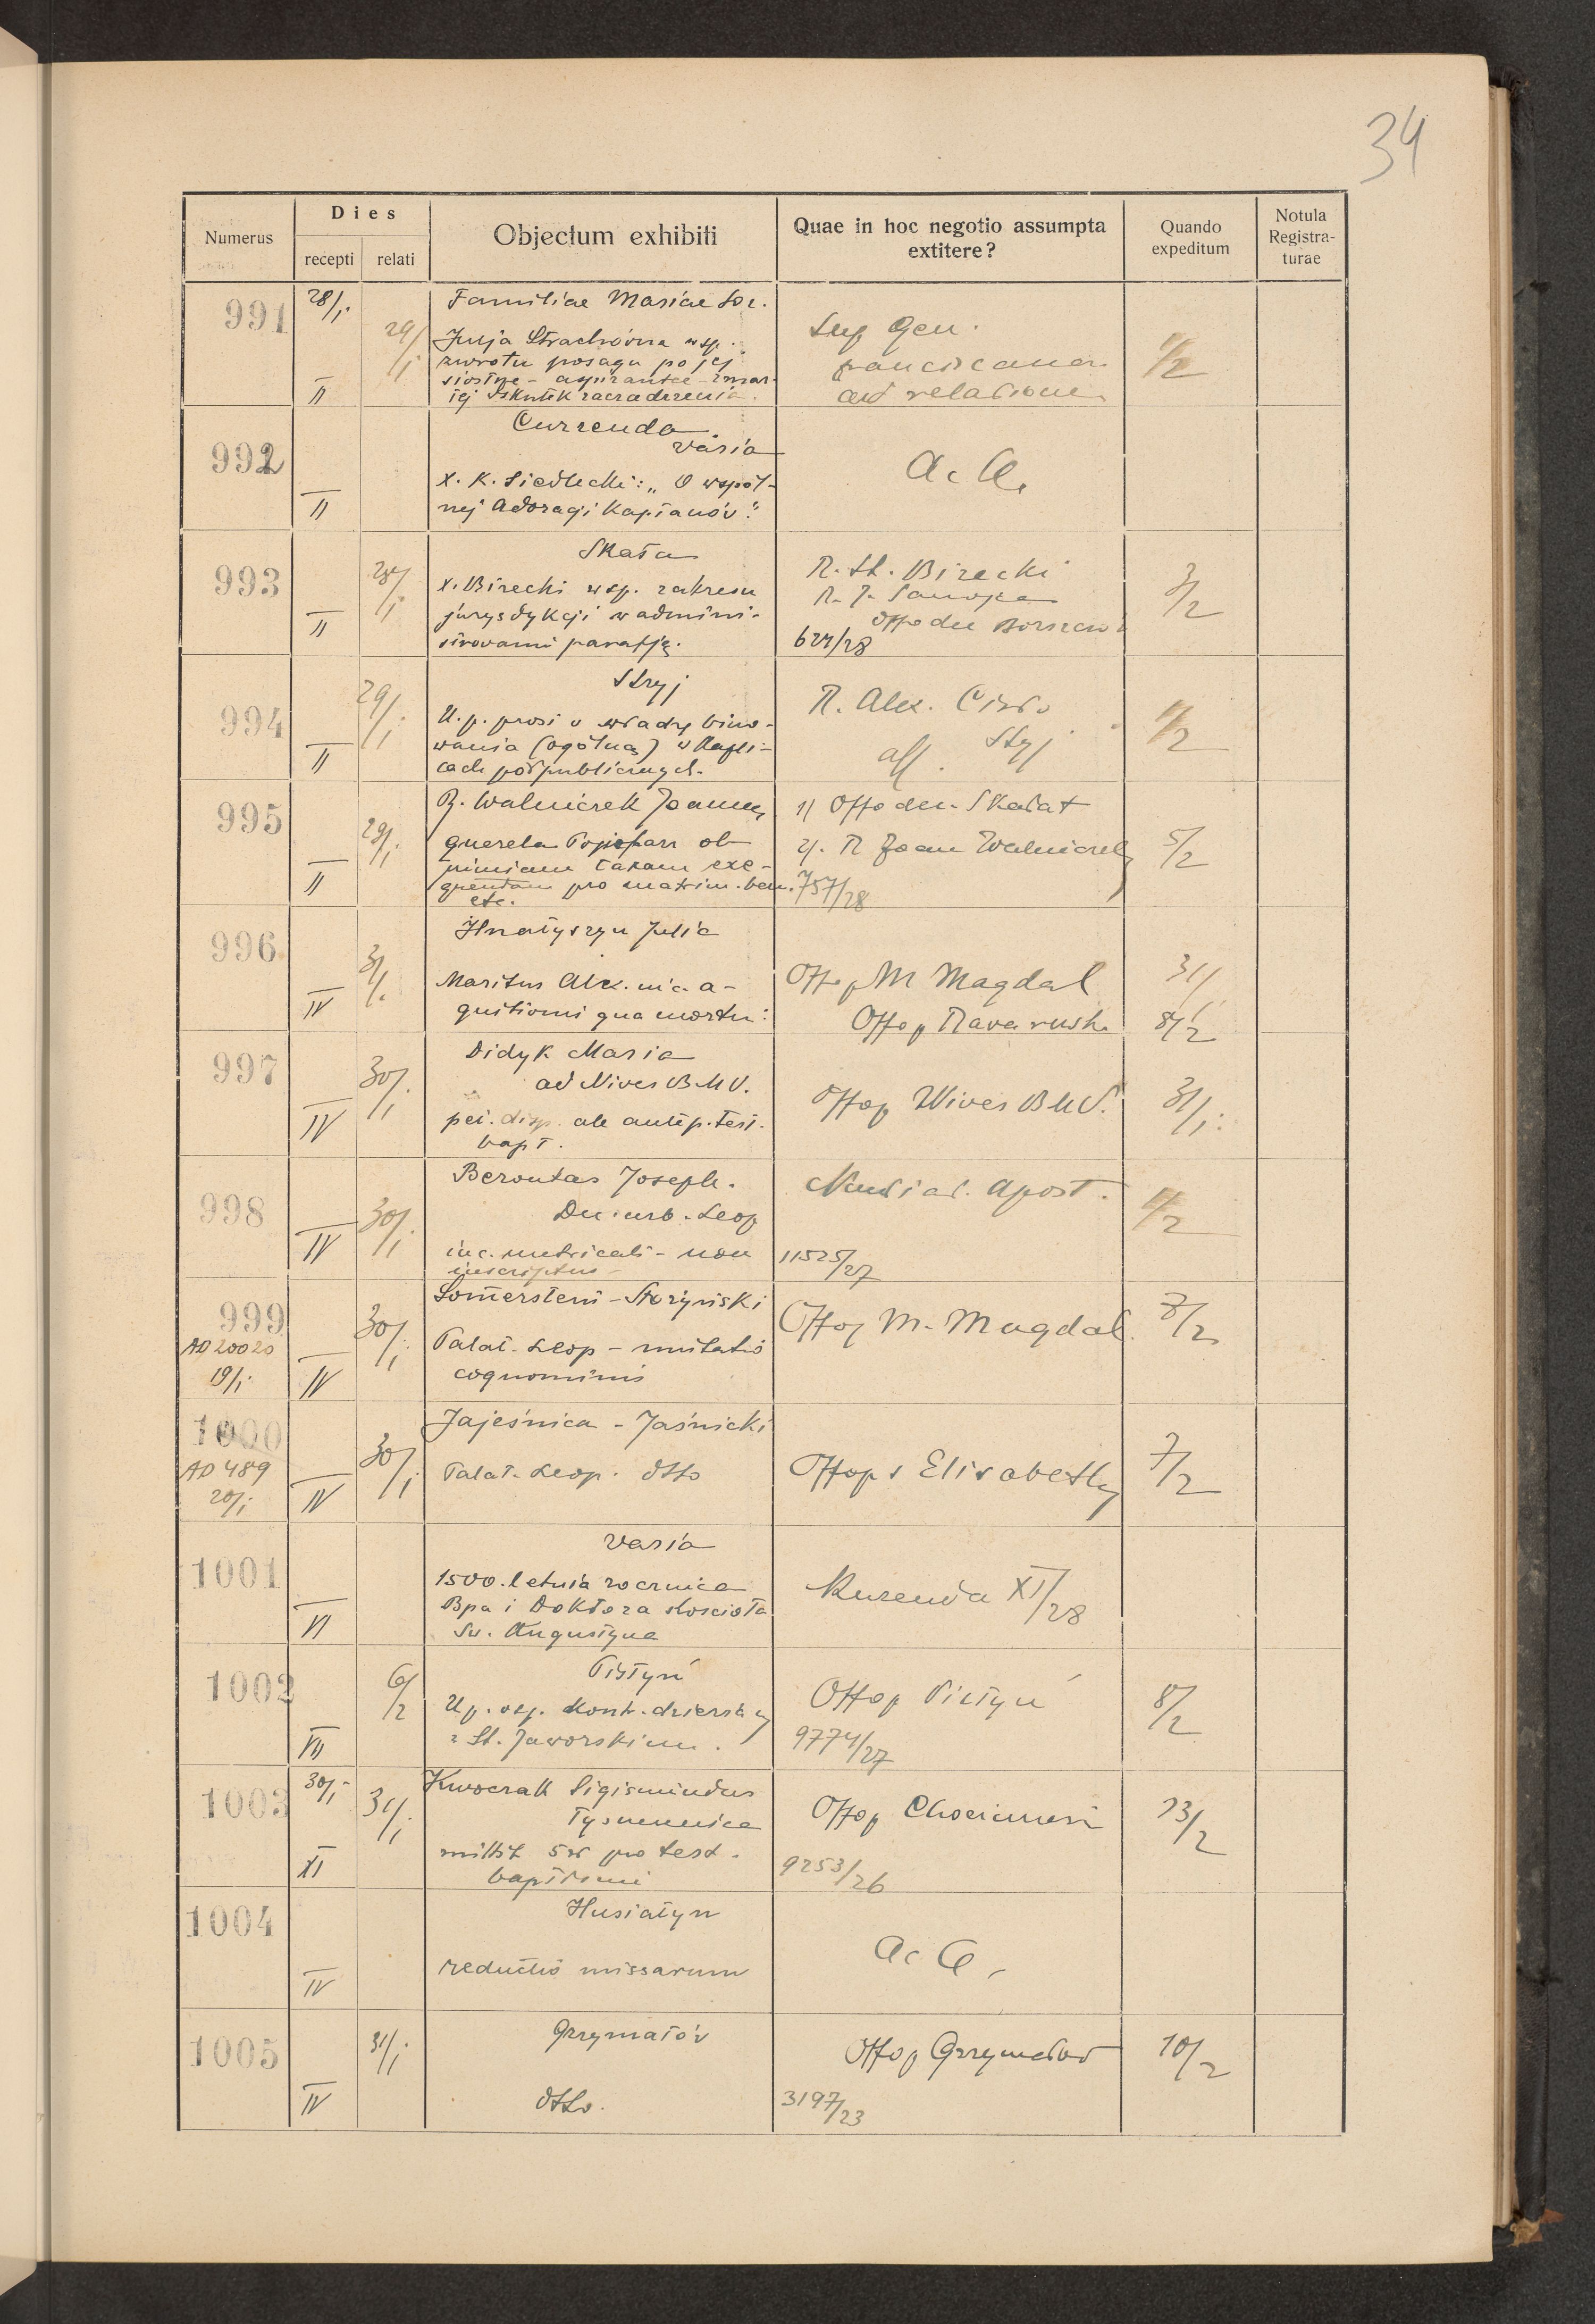 34
Numerus
Dies
recepti relati
Objectum exhibiti
Quae in hoc negotio assumpta
extitere?
Quando
expeditum
Notula
Registra-
turae
991
28/I
II
29/I
Familiae Mariae Sor.
Julja Strachówna wsp.
zwrotu posagu po jej
siostrze - aspirantce - zmar-
łej wskutek zaczadzenia.
Sup Gen.
franciscanar.
ad relationem
1/2
992
II
Currenda
varia
X. K. Siedlecki: „O wspól-
nej Adoracji Kapłanów."
A. A.
993
II
28/I
Skała
X. Birecki wsp. zakresu
jurysdykcji w admini-
strowaniu parafją.
R. St. Birecki
R. J.
Offo dec Borszczów
627/28
3/2
994
II
29/I
Stryj
U. p. prosi o władzę bino-
wania (ogólną) w Kapli-
cach półpublicznych.
R. Alex. Cisło
Stryj
aff.
1/2
995
II
29/I
R. Walniczek Joannes
querela ob
nimiam taxam exe-
quendam pro matrim. ben.
etc.
1/ Offo dec. Skałat
2/. R Joan Walniczek
757/28
5/2
996
IV
31/I
Hnatyszyn Julia
Maritus Alex. in a-
gnitioni qua mortu:
Offo p M Magdal
Offo p Rava rusk.
31/I
8/2
997
IV
30/I
Didyk Maria
ad Nives B.M.V.
pet. disp. ab antep. test.
bapt.
Offo p Nives B.M.V.
31/I
998
IV
30/I
Berontas Joseph.
Dec. urb. Leop
in c. metricali - non
inscriptus
Nuntiat. Apost.
11525/27
1/2
999
AD 20020
19/I
IV
30/I
Somerstein - Stożyński
Palat. Leop - mutatio
cognominis
Offo p M. Magdal.
7/2
1000
AD 489
20/I
IV
30/I
Jajeśnica - Jaśnicki
Palat. Leop. dtto
Offo p s Elisabeth
7/2
1001
VI
varia
1500. letnia rocznica
Bpa i Doktora Kościoła
Św. Augustyna
Kurenda XI/28
1002
VII
6/2
Pistyń
U p. wsp. kontr. dzierżawy
z St. Jaworskim.
Offo p Pistyń
9774/27
8/2
1003
30/I
XI
31/I
Kwoczak Sigismundus
Tysmenica
mittit 5 zł pro test.
baptismi
Offo p Chocimierz
9253/26
13/2
1004
IV
Husiatyn
reductio missarum
A. A.
1005
IV
31/I
Grzymałów
dtto.
Offo p Grzymałów
3197/23
10/2